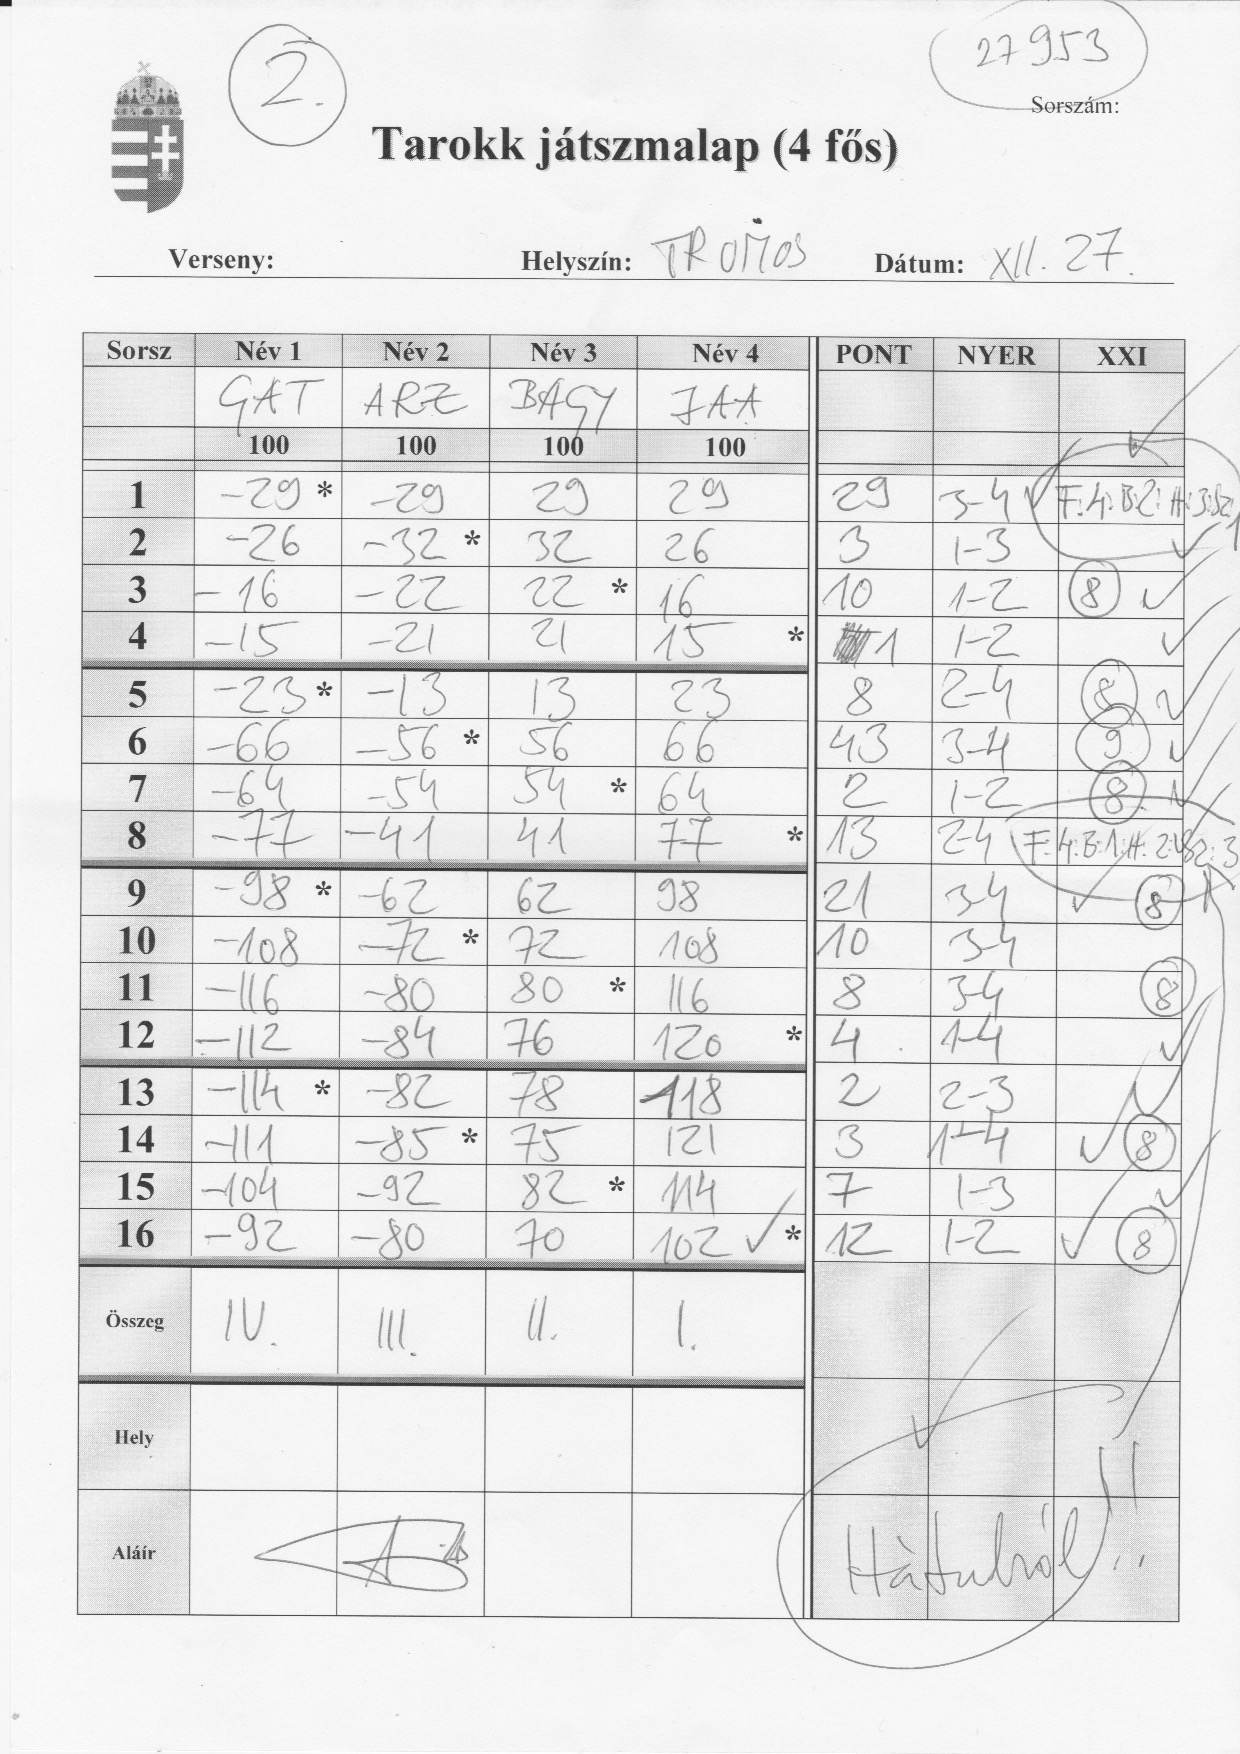 2.
27953
Sorszám:
Tarokk játszmalap (4 fős)
Verseny: Helyszín: TROMOS Dátum: XII. 27.
Sorsz Név 1 Név 2 Név 3 Név 4 PONT NYER XXI
GAT ARZ BAGY JAA
100 100 100 100
1 -29 * -29 29 29 29 3-4 F:4:B:2:H:3:Sz:1
2 -26 -32 * 32 26 3 1-3
3 -16 -22 22 * 16 10 1-2 8
4 -15 -21 21 15 * 1 1-2
5 -23 * -13 13 23 8 2-4 8
6 -66 -56 * 56 66 43 3-4 9
7 -64 -54 54 * 64 2 1-2 8
8 -77 -41 41 77 * 13 2-4 F:4:B:1:H:2:Sz:3
9 -98 * -62 62 98 21 3-4 8
10 -108 -72 * 72 108 10 3-4
11 -116 -80 80 * 116 8 3-4 8
12 -112 -84 76 120 * 4 1-4
13 -114 * -82 78 118 2 2-3
14 -111 -85 * 75 121 3 1-4 8
15 -104 -92 82 * 114 7 1-3
16 -92 -80 70 102 * 12 1-2 8
Összeg IV. III. II. I.
Hely
Aláír Hátulról!!